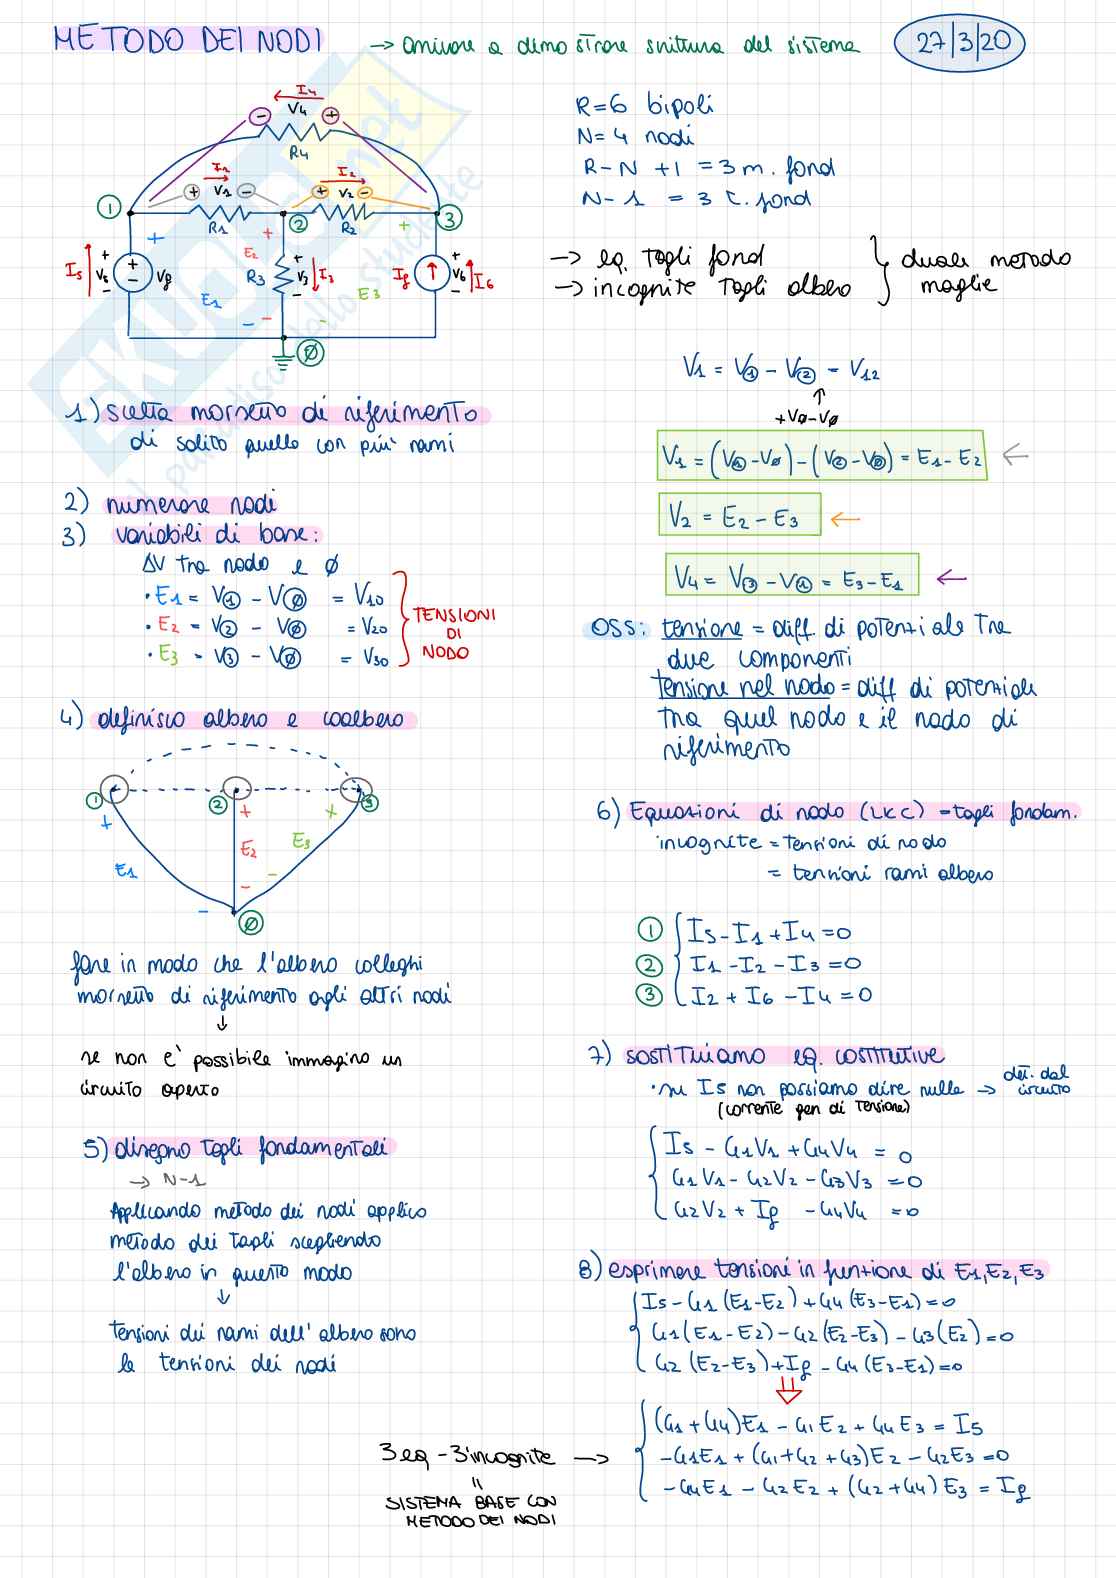 METODO DEI NODI → arrivare a dimostrare scrittura del sistema 27/3/20
I4
- V4 +
R4
I1 I2
+ V1 - + V2 -
1 R1 2 R2 3
+ + +
I5 V5 + - Vg E2 R3 + V3 - I3 Ig V6 + - I6
E1 E3
- - -
Ø
R=6 bipoli
N=4 nodi
R-N+1 = 3 m. fond
N-1 = 3 t. fond
→ eq. tagli fond
→ incognite tagli albero
duali metodo
maglie
V1 = V① - V② = V12
↑
+VØ-VØ
V1 = (V①-VØ) - (V②-VØ) = E1-E2 ←
V2 = E2 - E3 ←
V4 = V③ - V① = E3-E1 ←
OSS: tensione = diff. di potenziale tra
due componenti
tensione nel nodo = diff di potenziale
tra quel nodo e il nodo di
riferimento
1) scelta morsetto di riferimento
di solito quello con piu' rami
2) numerare nodi
3) variabili di base:
ΔV tra nodo e Ø
• E1 = V① - VØ = V10
• E2 = V② - VØ = V20
• E3 = V③ - VØ = V30
TENSIONI
DI
NODO
4) definisco albero e coalbero
1 2 3
+ + +
E1 E2 E3
- - -
Ø
fare in modo che l'albero colleghi
morsetto di riferimento agli altri nodi
↓
se non e' possibile immagino un
circuito aperto
5) disegno tagli fondamentali
→ N-1
Applicando metodo dei nodi applico
metodo dei tagli scegliendo
l'albero in questo modo
↓
tensioni dei rami dell'albero sono
le tensioni dei nodi
6) Equazioni di nodo (LKC) = tagli fondam.
incognite = tensioni di nodo
= tensioni rami albero
① I5-I1+I4=0
② I1-I2-I3=0
③ I2+I6-I4=0
7) sostituiamo eq. costitutive
• su I5 non possiamo dire nulla → det. dal
circuito
(corrente gen di tensione)
I5 - G1V1 + G4V4 = 0
G1V1 - G2V2 - G3V3 = 0
G2V2 + Ig - G4V4 = 0
8) esprimere tensioni in funzione di E1,E2,E3
I5-G1(E1-E2)+G4(E3-E1)=0
G1(E1-E2)-G2(E2-E3)-G3(E2)=0
G2(E2-E3)+Ig-G4(E3-E1)=0
⇓
(G1+G4)E1 - G1E2 + G4E3 = I5
-G1E1 + (G1+G2+G3)E2 - G2E3 = 0
-G4E1 - G2E2 + (G2+G4)E3 = Ig
3 eq - 3 incognite →
=
SISTEMA BASE CON
METODO DEI NODI